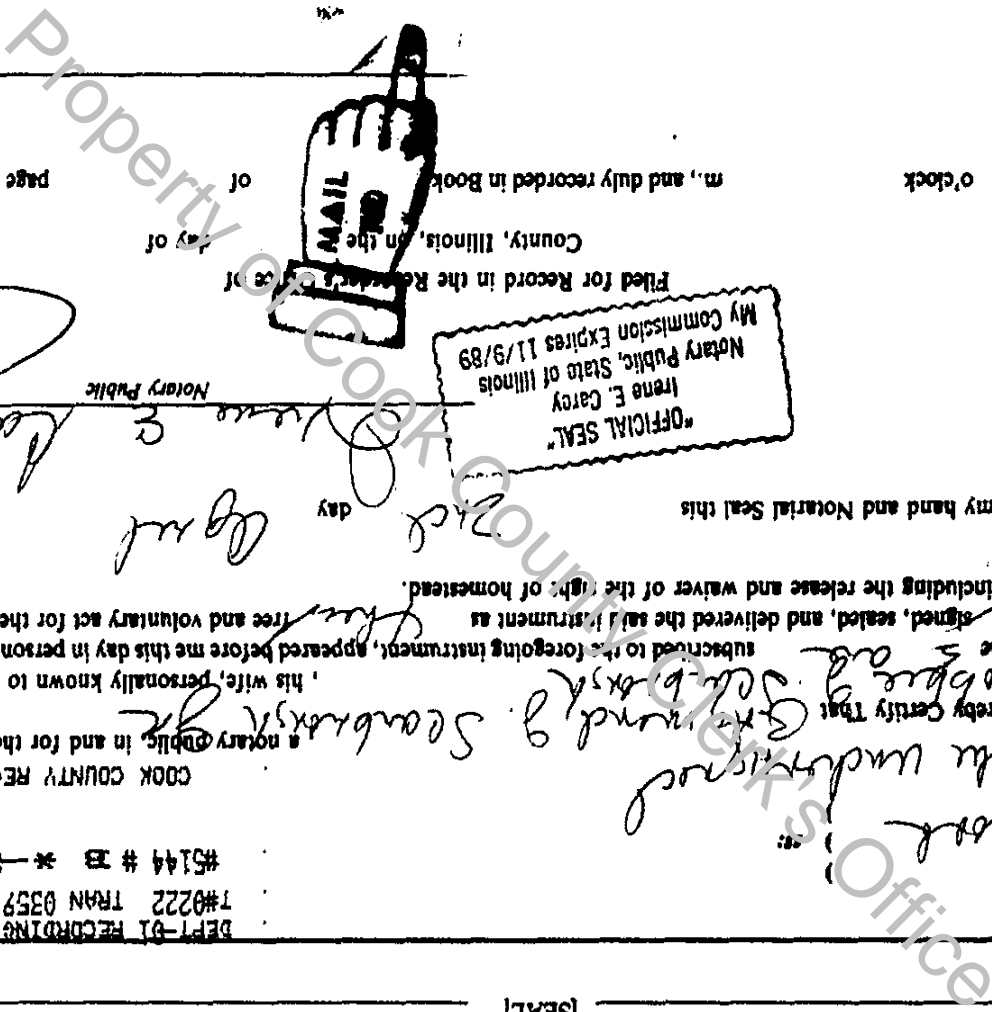 [SEAL]
DEPT-01 RECORDING
T#0222 TRAN 0359
#5144 # B *—
COOK COUNTY REC
ss:
the undersigned
a notary public, in and for the
reby Certify That Raymond J. Scarbrough Jr
J. Scarbrough, his wife, personally known to
subscribed to the foregoing instrument, appeared before me this day in person
signed, sealed, and delivered the said instrument as their free and voluntary act for the
including the release and waiver of the right of homestead.
my hand and Notarial Seal this 2nd day April
"OFFICIAL SEAL"
Irene E. Carey
Notary Public, State of Illinois
My Commission Expires 11/9/89
Irene E
Notary Public
Filed for Record in the Recorder's Office of
County, Illinois, on the day of
o'clock m., and duly recorded in Book of page
MAIL
TO
Property of Cook County Clerk's Office